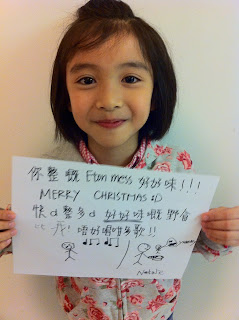 你整嘅 Eton mess 好好味!!!
MERRY CHRISTMAS :D
快d整多d 好好味嘅 野食
比 我! 唔好唱咁多歌!!
Natalie